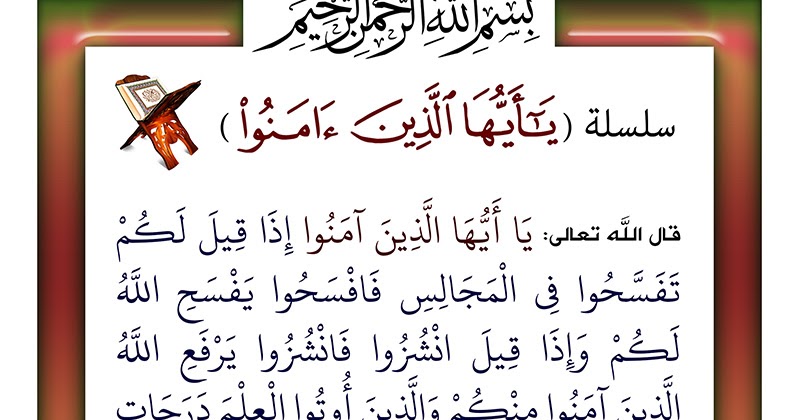 بِسْمِ اللَّهِ الرَّحْمَنِ الرَّحِيمِ
سلسلة (يَـٰٓأَيُّهَا ٱلَّذِينَ ءَامَنُوا۟)
قال الله تعالى: يَا أَيُّهَا الَّذِينَ آمَنُوا إِذَا قِيلَ لَكُمْ
تَفَسَّحُوا فِي الْمَجَالِسِ فَافْسَحُوا يَفْسَحِ اللَّهُ
لَكُمْ وَإِذَا قِيلَ انْشُزُوا فَانْشُزُوا يَرْفَعِ اللَّهُ
الَّذِينَ آمَنُوا مِنْكُمْ وَالَّذِينَ أُوتُوا الْعِلْمَ دَرَجَاتٍ